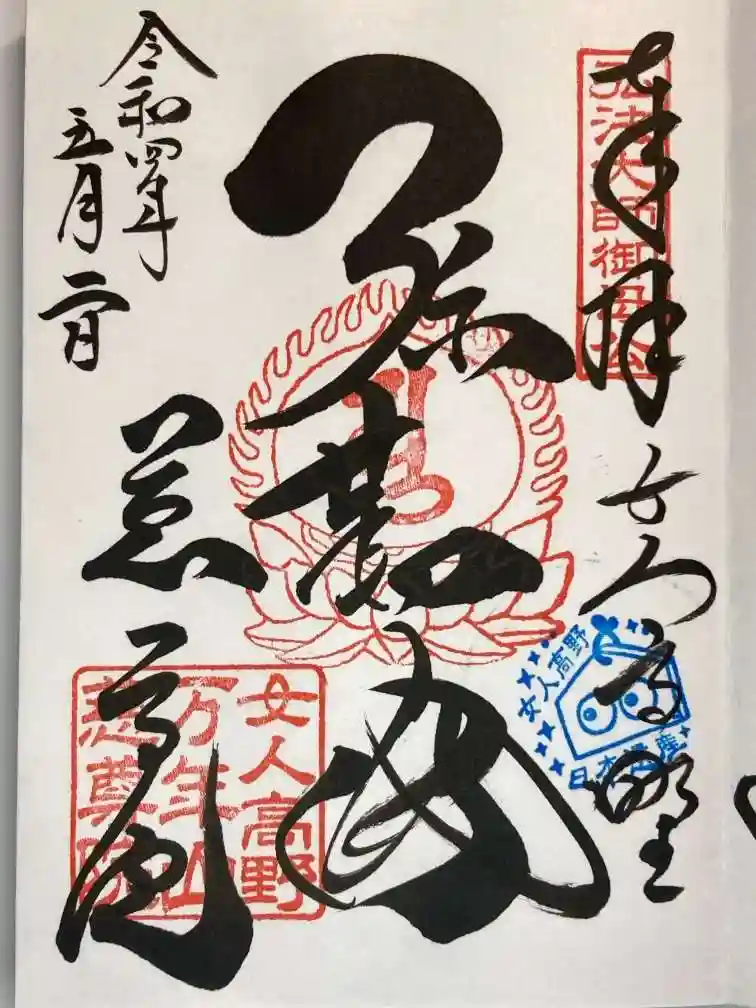 奉拝 女人高野
弘法大師御母公
弥勒
慈尊院
令和四年
五月二日
女人高野
万年山
慈尊院
女人高野
日本遺産